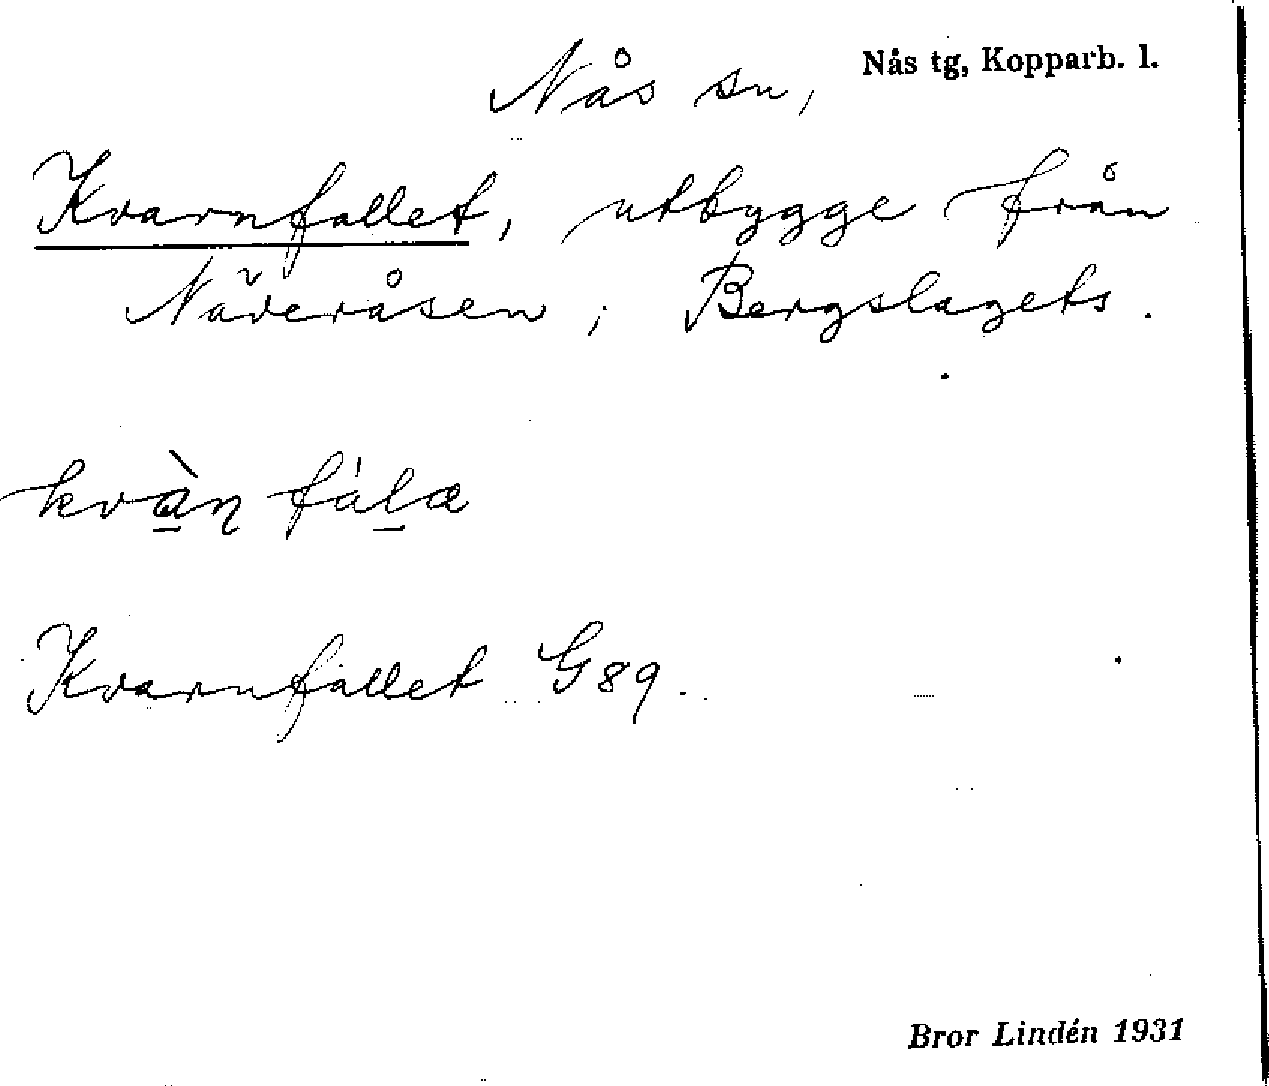 Nås sn, Nås tg, Kopparb. l.
Kvarnfallet, utbygge från
Näveråsen; Bergslagets.
kvàn fálæ
Kvarnfallet G89.
Bror Lindén 1931